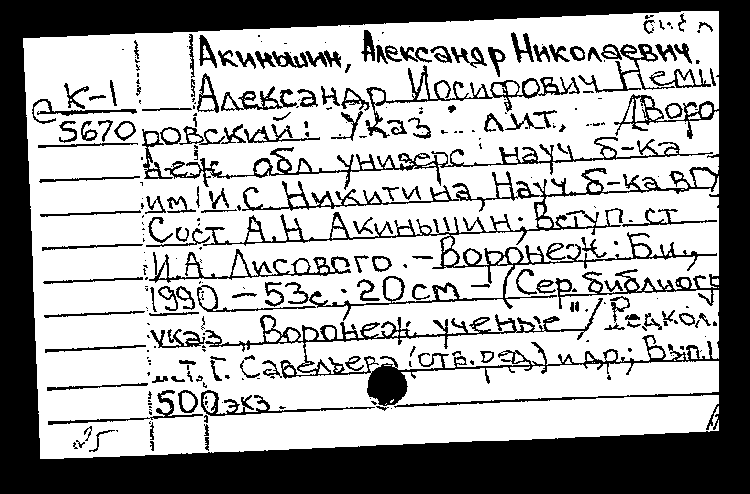 библ
Акиньшин, Александр Николаевич.
К-1 Александр Иосифович Неми-
5670 ровский: Указ. лит. / Воро-
неж. обл. универс. науч. б-ка
им. И.С. Никитина, Науч. б-ка ВГУ
Сост. А.Н. Акиньшин; Вступ. ст
И.А. Лисового. – Воронеж: Б.и.,
1990. – 53с.; 20 см – (Сер. библиогр
указ. „Воронеж. ученые" / Редкол.
Т. Г. Савельева (отв. ред.) и др.; Вып.
500 экз.
25